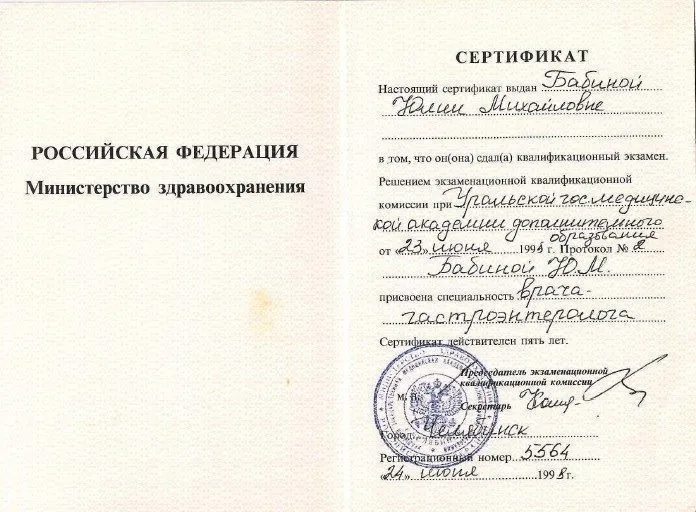 РОССИЙСКАЯ ФЕДЕРАЦИЯ
Министерство здравоохранения
СЕРТИФИКАТ
Настоящий сертификат выдан Бабиной
Юлии Михайловне
в том, что он(она) сдал(а) квалификационный экзамен.
Решением экзаменационной квалификационной
комиссии при Уральской гос.медицинс-
кой академии дополнительного
образования
от «23» июня 1998 г. Протокол №
Бабиной Ю.М.
присвоена специальность врача-
гастроэнтеролога
Сертификат действителен пять лет.
Председатель экзаменационной
квалификационной комиссии
М. П.
Секретарь
Город: Челябинск
Регистрационный номер 5564
«24» июня 1998 г.